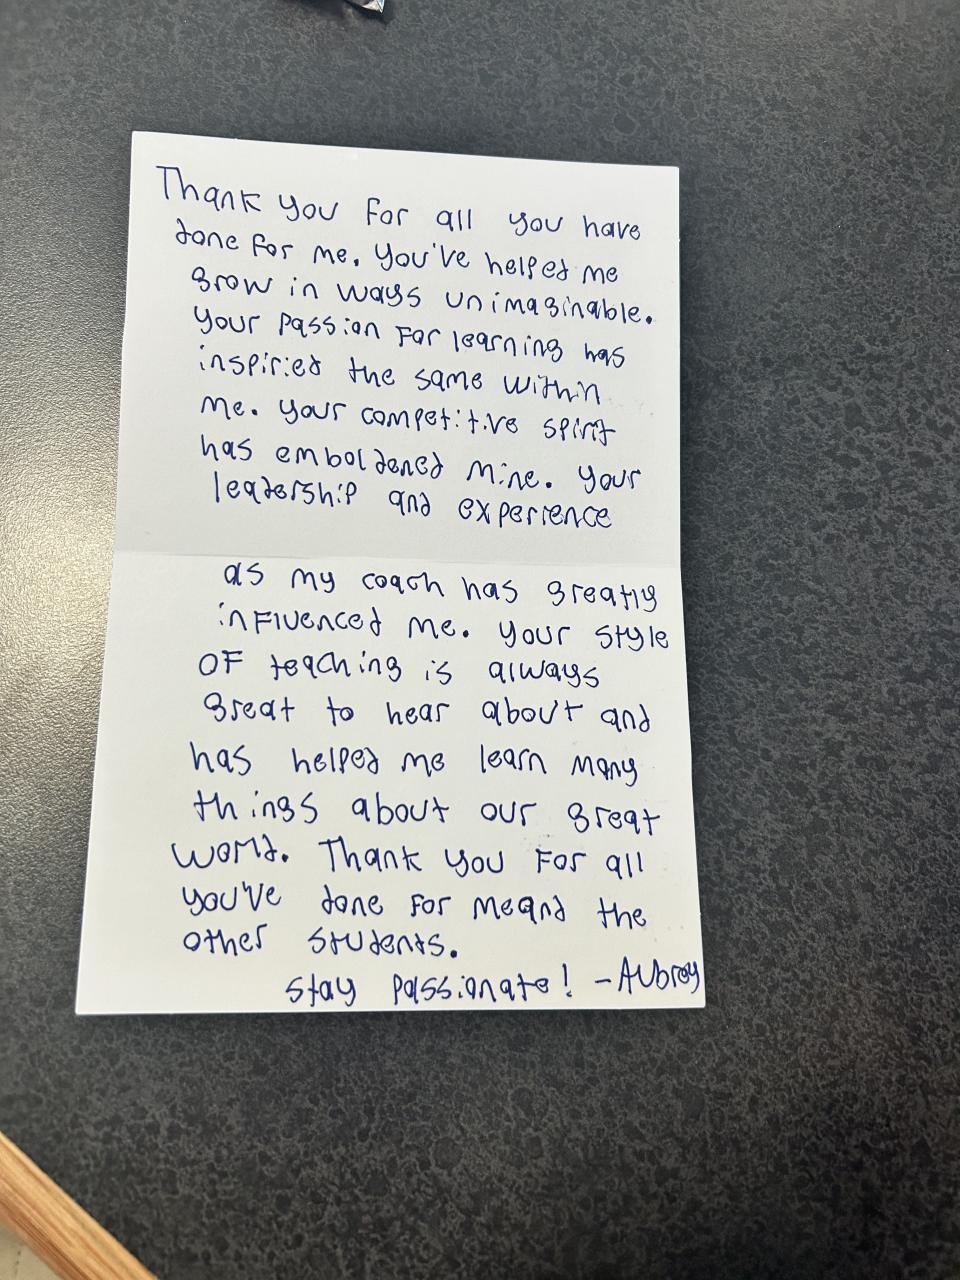 Thank you for all you have
done for me. You've helped me
grow in ways unimaginable.
Your passion for learning has
inspiried the same within
me. Your competitive spirit
has emboldened mine. Your
leadership and experience
as my coach has greatly
influenced me. Your style
of teaching is always
great to hear about and
has helped me learn many
things about our great
world. Thank you for all
you've done for me and the
other students.
Stay passionate! -Aubrey